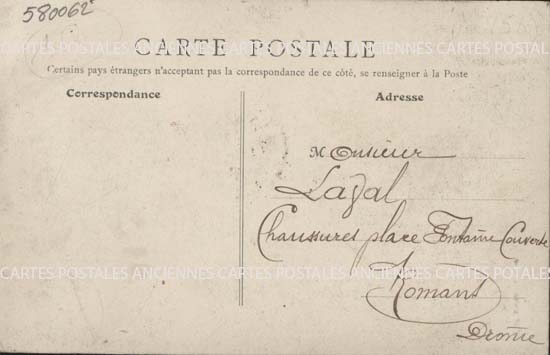 580062
CARTE POSTALE
Certains pays étrangers n'acceptant pas la correspondance de ce côté, se renseigner à la Poste
Correspondance
Adresse
Monsieur
Laval
Chaussures place Fontaine Couverte
Romans
Drome
CARTES POSTALES ANCIENNES CARTES POSTALES ANCIENNES CARTES POSTALES
CARTES POSTALES ANCIENNES CARTES POSTALES ANCIENNES CARTES POSTALES